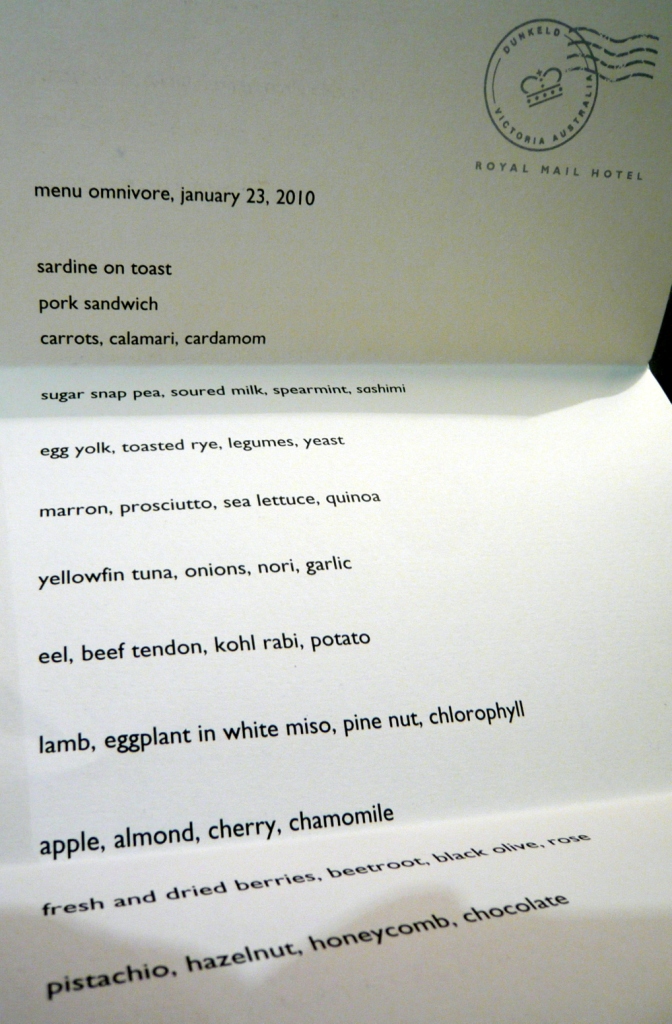 DUNKELD
VICTORIA AUSTRALIA
ROYAL MAIL HOTEL
menu omnivore, january 23, 2010
sardine on toast
pork sandwich
carrots, calamari, cardamom
sugar snap pea, soured milk, spearmint, sashimi
egg yolk, toasted rye, legumes, yeast
marron, prosciutto, sea lettuce, quinoa
yellowfin tuna, onions, nori, garlic
eel, beef tendon, kohl rabi, potato
lamb, eggplant in white miso, pine nut, chlorophyll
apple, almond, cherry, chamomile
fresh and dried berries, beetroot, black olive, rose
pistachio, hazelnut, honeycomb, chocolate